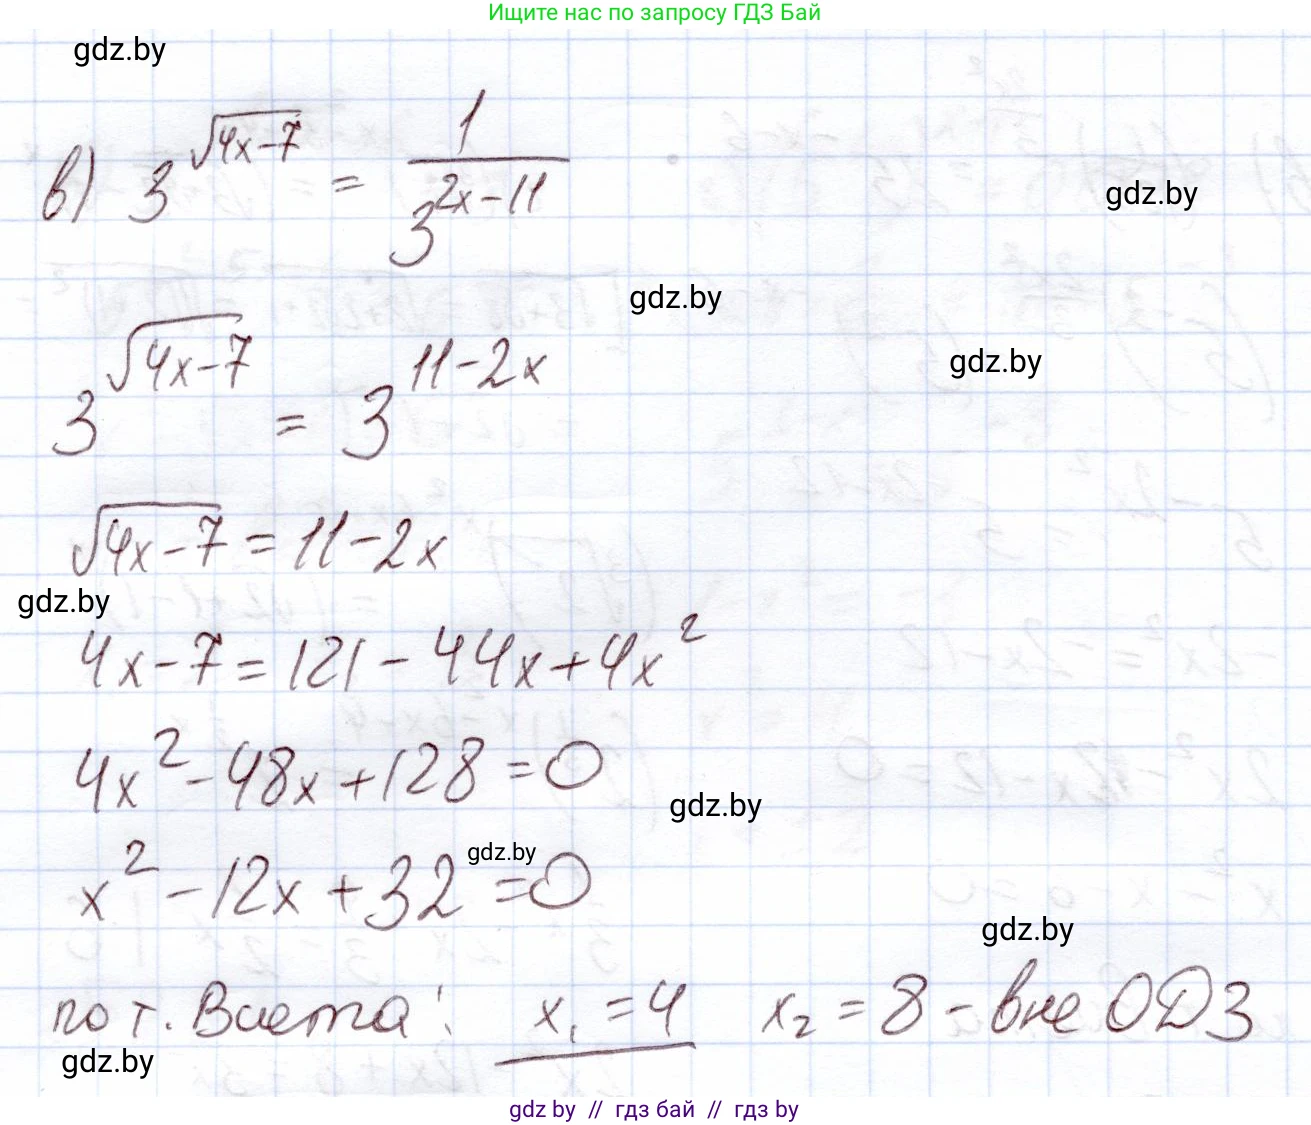 Ищите нас по запросу ГДЗ Бай
gdz.by
в) 3^√(4x-7) = 1/3^(2x-11)
gdz.by
gdz.by
gdz.by
3^√(4x-7) = 3^(11-2x)
√(4x-7) = 11-2x
gdz.by
4x-7 = 121-44x+4x²
4x²-48x+128=0
gdz.by
gdz.by
x²-12x+32=0
gdz.by
по т. Виета: x₁=4 x₂=8 - вне ОДЗ
gdz.by
gdz by // гдз бай // гдз by